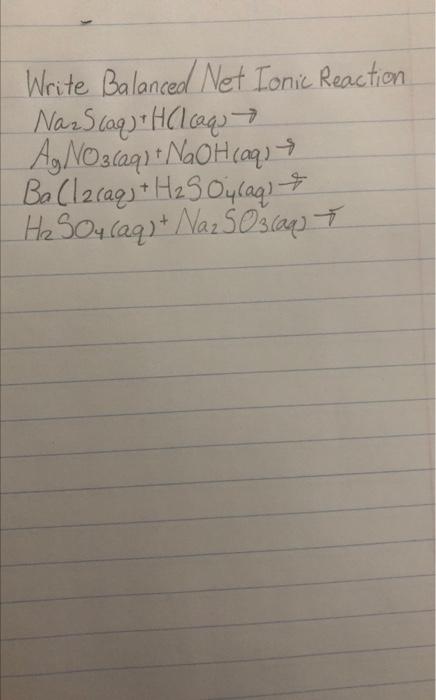 Write Balanced Net Ionic Reaction
Na2S(aq) + HCl(aq) →
AgNO3(aq) + NaOH(aq) →
BaCl2(aq) + H2SO4(aq) →
H2SO4(aq) + Na2SO3(aq) →